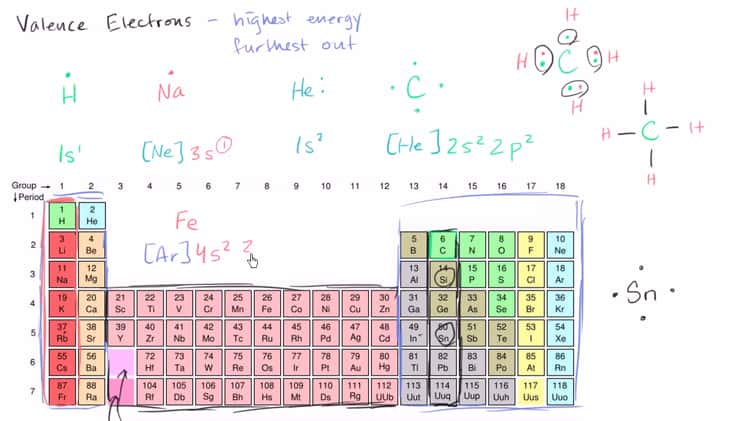 Valence Electrons – highest energy
furthest out
H Na He: C
1s¹ [Ne]3s① 1s² [He]2s²2p²
H
H C H
H
H
H – C – H
H
Group → 1 2 3 4 5 6 7 8 9 10 11 12 13 14 15 16 17 18
↓Period
Fe
[Ar]4s² 3
Sn
1 1 H 2 He
2 3 Li 4 Be 5 B 6 C 7 N 8 O 9 F 10 Ne
3 11 Na 12 Mg 13 Al 14 Si 15 P 16 S 17 Cl 18 Ar
4 19 K 20 Ca 21 Sc 22 Ti 23 V 24 Cr 25 Mn 26 Fe 27 Co 28 Ni 29 Cu 30 Zn 31 Ga 32 Ge 33 As 34 Se 35 Br 36 Kr
5 37 Rb 38 Sr 39 Y 40 Zr 41 Nb 42 Mo 43 Tc 44 Ru 45 Rh 46 Pd 47 Ag 48 Cd 49 In 50 Sn 51 Sb 52 Te 53 I 54 Xe
6 55 Cs 56 Ba 72 Hf 73 Ta 74 W 75 Re 76 Os 77 Ir 78 Pt 79 Au 80 Hg 81 Tl 82 Pb 83 Bi 84 Po 85 At 86 Rn
7 87 Fr 88 Ra 104 Rf 105 Db 106 Sg 107 Bh 108 Hs 109 Mt 110 Ds 111 Rg 112 UUb 113 Uut 114 Uuq 115 Uup 116 Uuh 117 Uus 118 Uuo